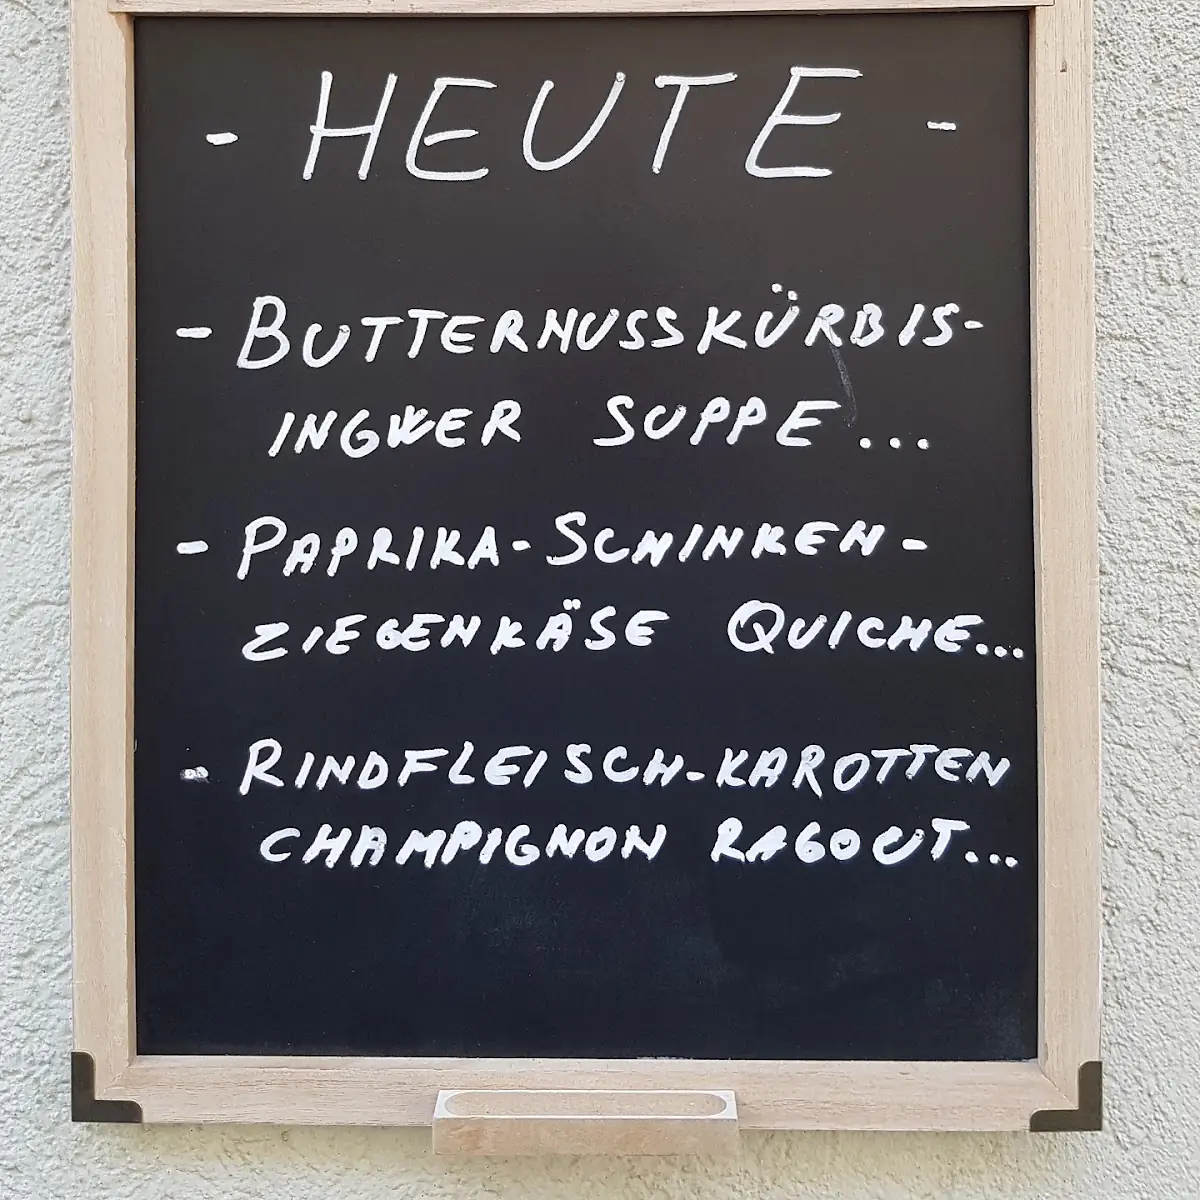 - HEUTE -
- BUTTERNUSSKÜRBIS-
INGWER SUPPE...
- PAPRIKA-SCHINKEN-
ZIEGENKÄSE QUICHE...
- RINDFLEISCH-KAROTTEN
CHAMPIGNON RAGOUT...